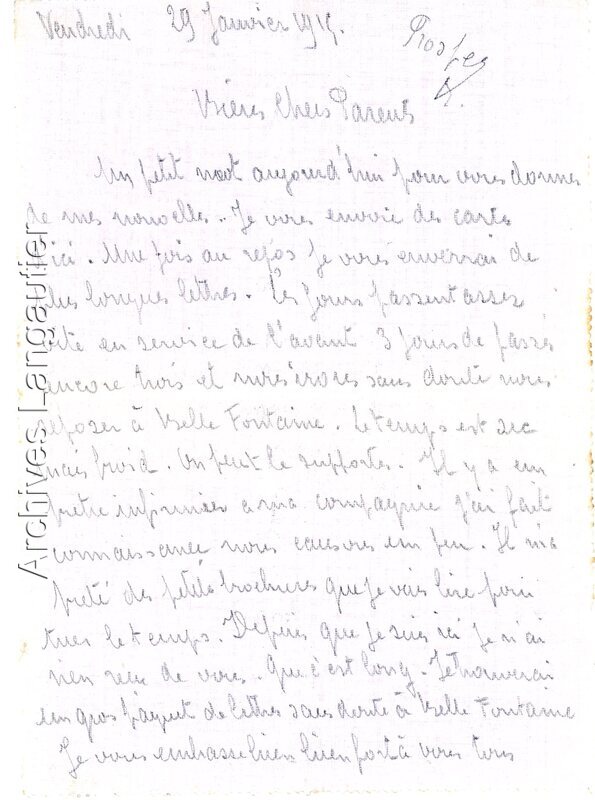 Vendredi 29 Janvier 1915.
Biens Chers Parents
Un petit mot aujourd'hui pour vous donner
de mes nouvelles. Je vous envoie des carte
ici. Une fois au repos Je vous enverrai de
plus longues lettres. Les Jours passent assez
vite en service de l'avant 3 jours de passé
encore trois et nous irons sans doute nous
reposer à Belle Fontaine. Le temps est sec
mais froid. On peut le supporter. Il y a un
pretre infirmier a ma compagnie j'ai fait
connaissance nous causons un peu. Il m'a
preté des petits brochures que je vais lire pour
tuer le temps. Depuis que Je suis ici Je n'ai
rien recu de vous. Que c'est long. Je trouverai
un gros paquet de lettres sans doute à Belle Fontaine
Je vous embrasse bien bien fort à vous tous
Archives Langautier